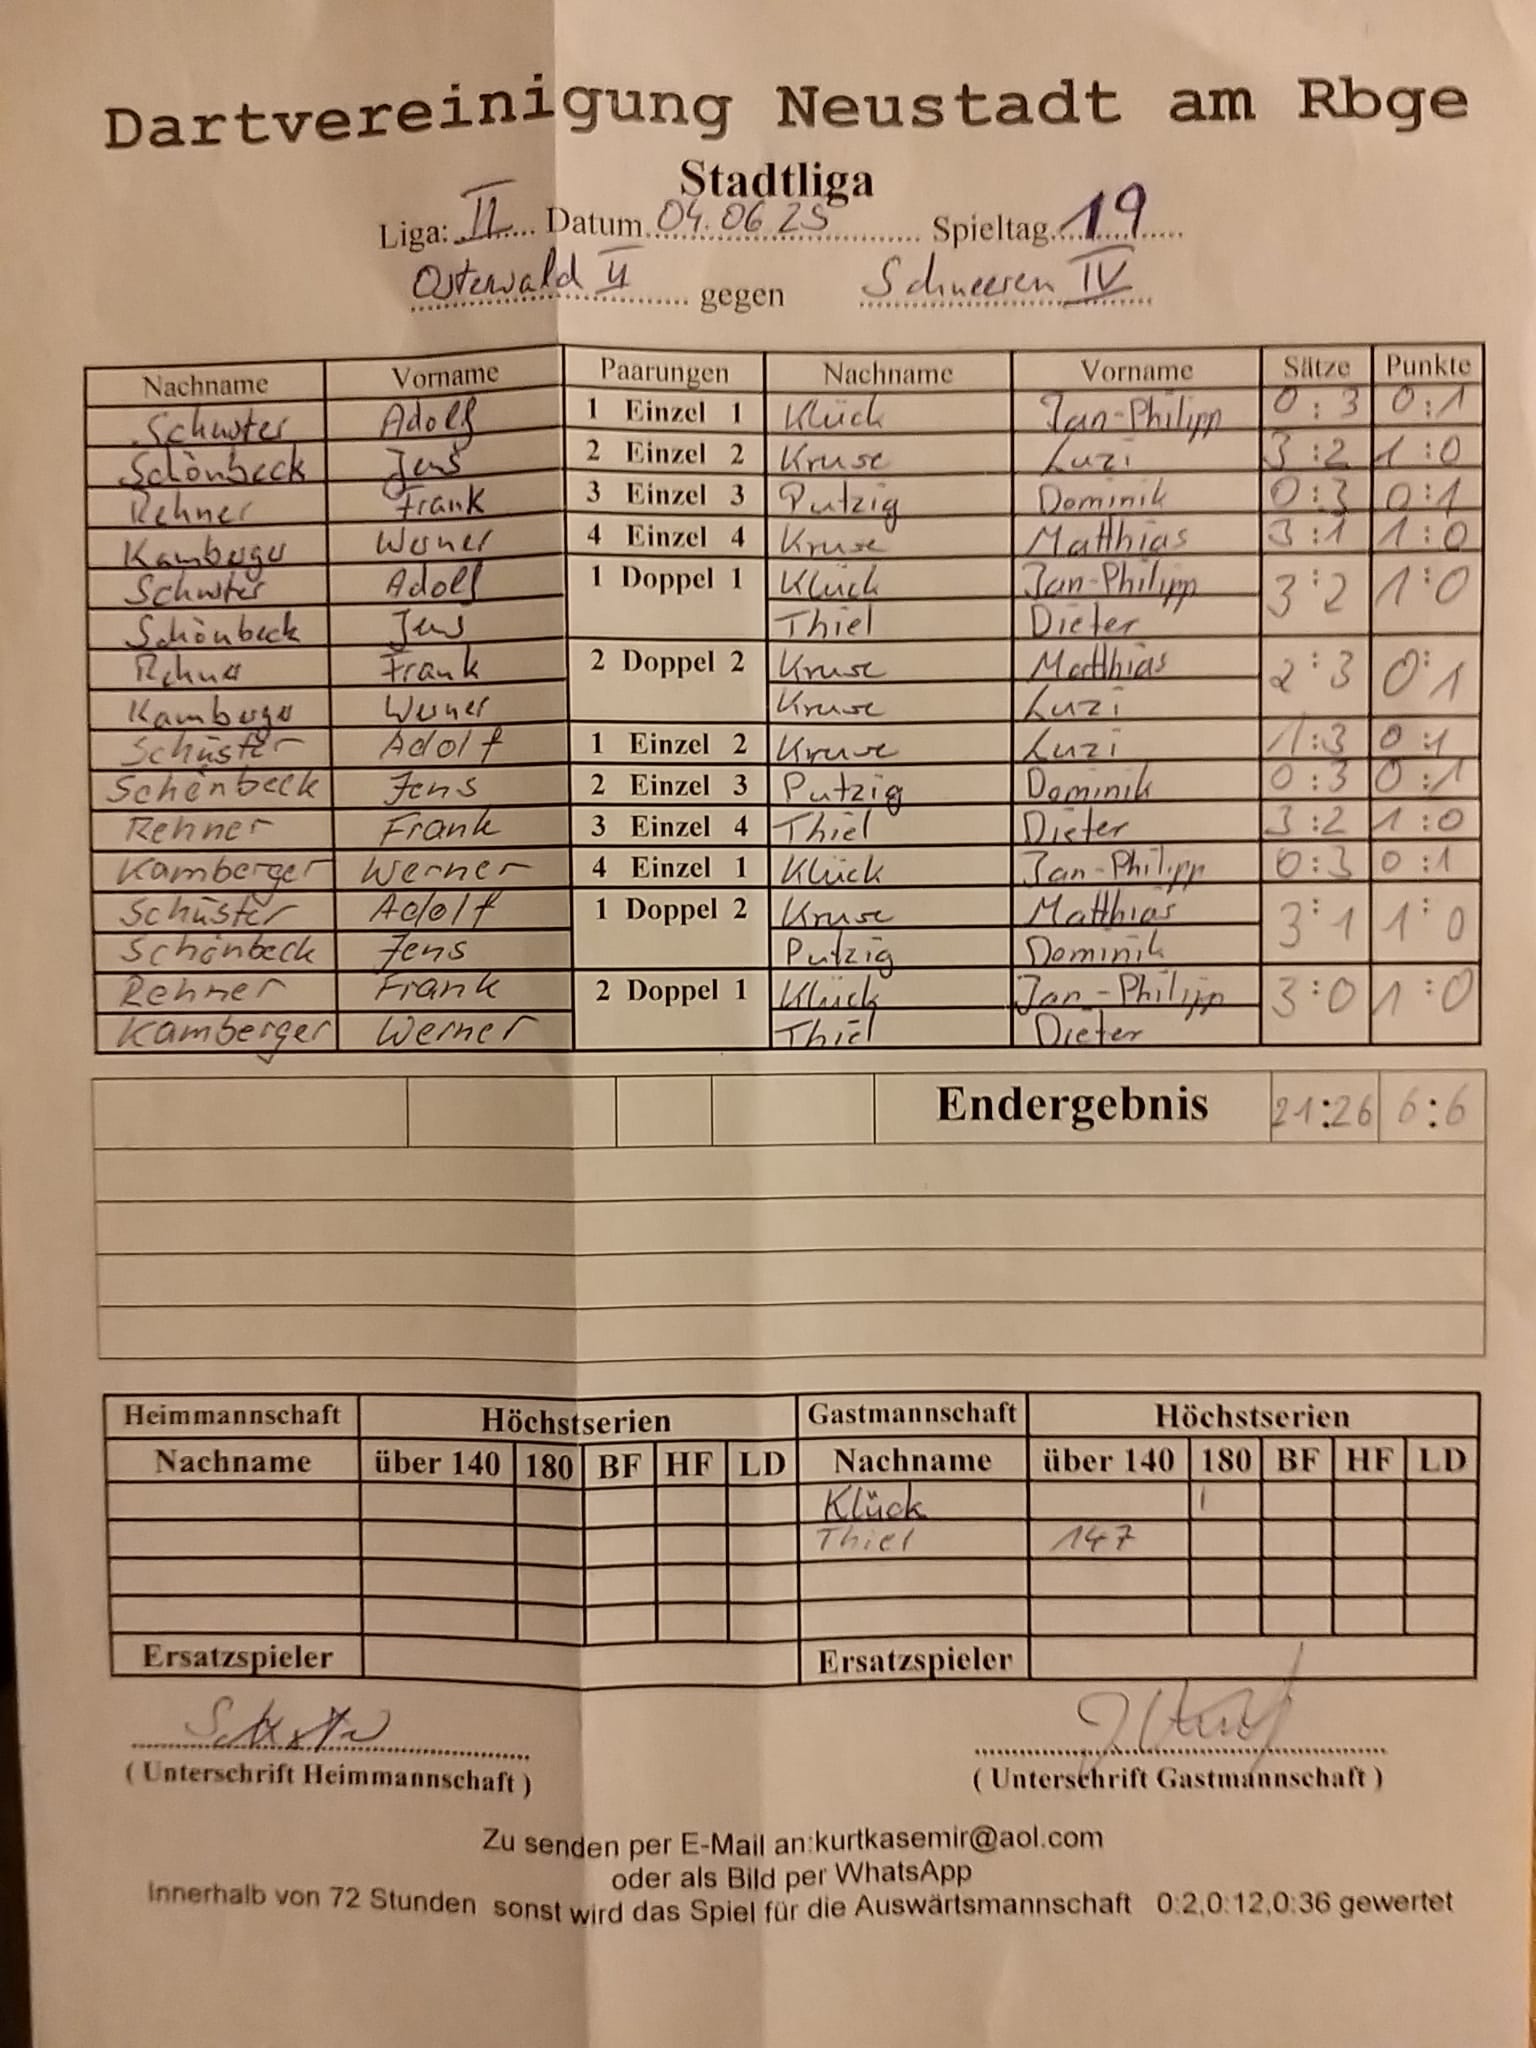 Dartvereinigung Neustadt am Rbge
Stadtliga
Liga: II Datum 04.06 25 Spieltag 19
Osterwald II gegen Schneeren IV
Nachname Vorname Paarungen Nachname Vorname Sätze Punkte
Schuster Adolf 1 Einzel 1 Klück Jan-Philipp 0:3 0:1
Schönbeck Jens 2 Einzel 2 Kruse Luzi 3:2 1:0
Rehner Frank 3 Einzel 3 Putzig Dominik 0:3 0:1
Kamberger Werner 4 Einzel 4 Kruse Matthias 3:1 1:0
Schuster Adolf 1 Doppel 1 Klück Jan-Philipp 3:2 1:0
Schönbeck Jens Thiel Dieter
Rehner Frank 2 Doppel 2 Kruse Matthias 2:3 0:1
Kamberger Werner Kruse Luzi
Schuster Adolf 1 Einzel 2 Kruse Luzi 1:3 0:1
Schönbeck Jens 2 Einzel 3 Putzig Dominik 0:3 0:1
Rehner Frank 3 Einzel 4 Thiel Dieter 3:2 1:0
Kamberger Werner 4 Einzel 1 Klück Jan-Philipp 0:3 0:1
Schuster Adolf 1 Doppel 2 Kruse Matthias 3:1 1:0
Schönbeck Jens Putzig Dominik
Rehner Frank 2 Doppel 1 Klück Jan-Philipp 3:0 1:0
Kamberger Werner Thiel Dieter
Endergebnis 21:26 6:6
Heimmannschaft Höchstserien Gastmannschaft Höchstserien
Nachname über 140 180 BF HF LD Nachname über 140 180 BF HF LD
Klück I
Thiel 147
Ersatzspieler Ersatzspieler
( Unterschrift Heimmannschaft ) ( Unterschrift Gastmannschaft )
Zu senden per E-Mail an:kurtkasemir@aol.com
oder als Bild per WhatsApp
Innerhalb von 72 Stunden sonst wird das Spiel für die Auswärtsmannschaft 0:2,0:12,0:36 gewertet